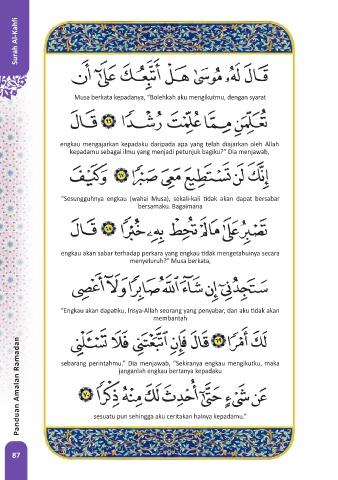 Surah Al-Kahfi
قَالَ لَهُۥ مُوسَىٰ هَلْ أَتَّبِعُكَ عَلَىٰٓ أَن
Musa berkata kepadanya, “Bolehkah aku mengikutmu, dengan syarat
تُعَلِّمَنِ مِمَّا عُلِّمْتَ رُشْدًا ﴿٦٦﴾ قَالَ
engkau mengajarkan kepadaku daripada apa yang telah diajarkan oleh Allah
kepadamu sebagai ilmu yang menjadi petunjuk bagiku?” Dia menjawab,
إِنَّكَ لَن تَسْتَطِيعَ مَعِىَ صَبْرًا ﴿٦٧﴾ وَكَيْفَ
“Sesungguhnya engkau (wahai Musa), sekali-kali tidak akan dapat bersabar
bersamaku. Bagaimana
تَصْبِرُ عَلَىٰ مَا لَمْ تُحِطْ بِهِۦ خُبْرًا ﴿٦٨﴾ قَالَ
engkau akan sabar terhadap perkara yang engkau tidak mengetahuinya secara
menyeluruh?” Musa berkata,
سَتَجِدُنِىٓ إِن شَآءَ ٱللَّهُ صَابِرًا وَلَآ أَعْصِى
“Engkau akan dapatiku, Insya-Allah seorang yang penyabar, dan aku tidak akan
membantah
لَكَ أَمْرًا ﴿٦٩﴾ قَالَ فَإِنِ ٱتَّبَعْتَنِى فَلَا تَسْـَٔلْنِى
sebarang perintahmu.” Dia menjawab, “Sekiranya engkau mengikutku, maka
janganlah engkau bertanya kepadaku
عَن شَىْءٍ حَتَّىٰٓ أُحْدِثَ لَكَ مِنْهُ ذِكْرًا ﴿٧٠﴾
sesuatu pun sehingga aku ceritakan halnya kepadamu.”
Panduan Amalan Ramadan
87